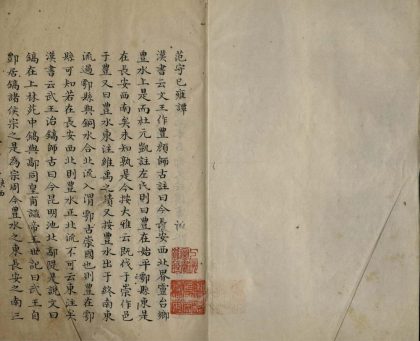 范守己雍譚
漢書云文王作豐顏師古註曰今長安西北界靈臺鄉
豐水上是而杜元凱註左氏則曰豐在始平鄠縣東是
在長安西南矣未知孰是今按大雅云既伐于崇作邑
于豐又曰豐水東注維禹之績又按豐水出于終南東
流過鄠縣與鎬水合北流入渭鄠古崇國也則豐在鄠
縣可知若在長安西北則豐水正北流不可云東注矣
漢書云武王治鎬師古曰今昆明池北鄗陂是說文曰
鎬在上林苑中鎬與鄗同皇甫謐帝王世記曰武王自
酆居鎬諸侯宗之是為宗周今豐水之東長安之南三